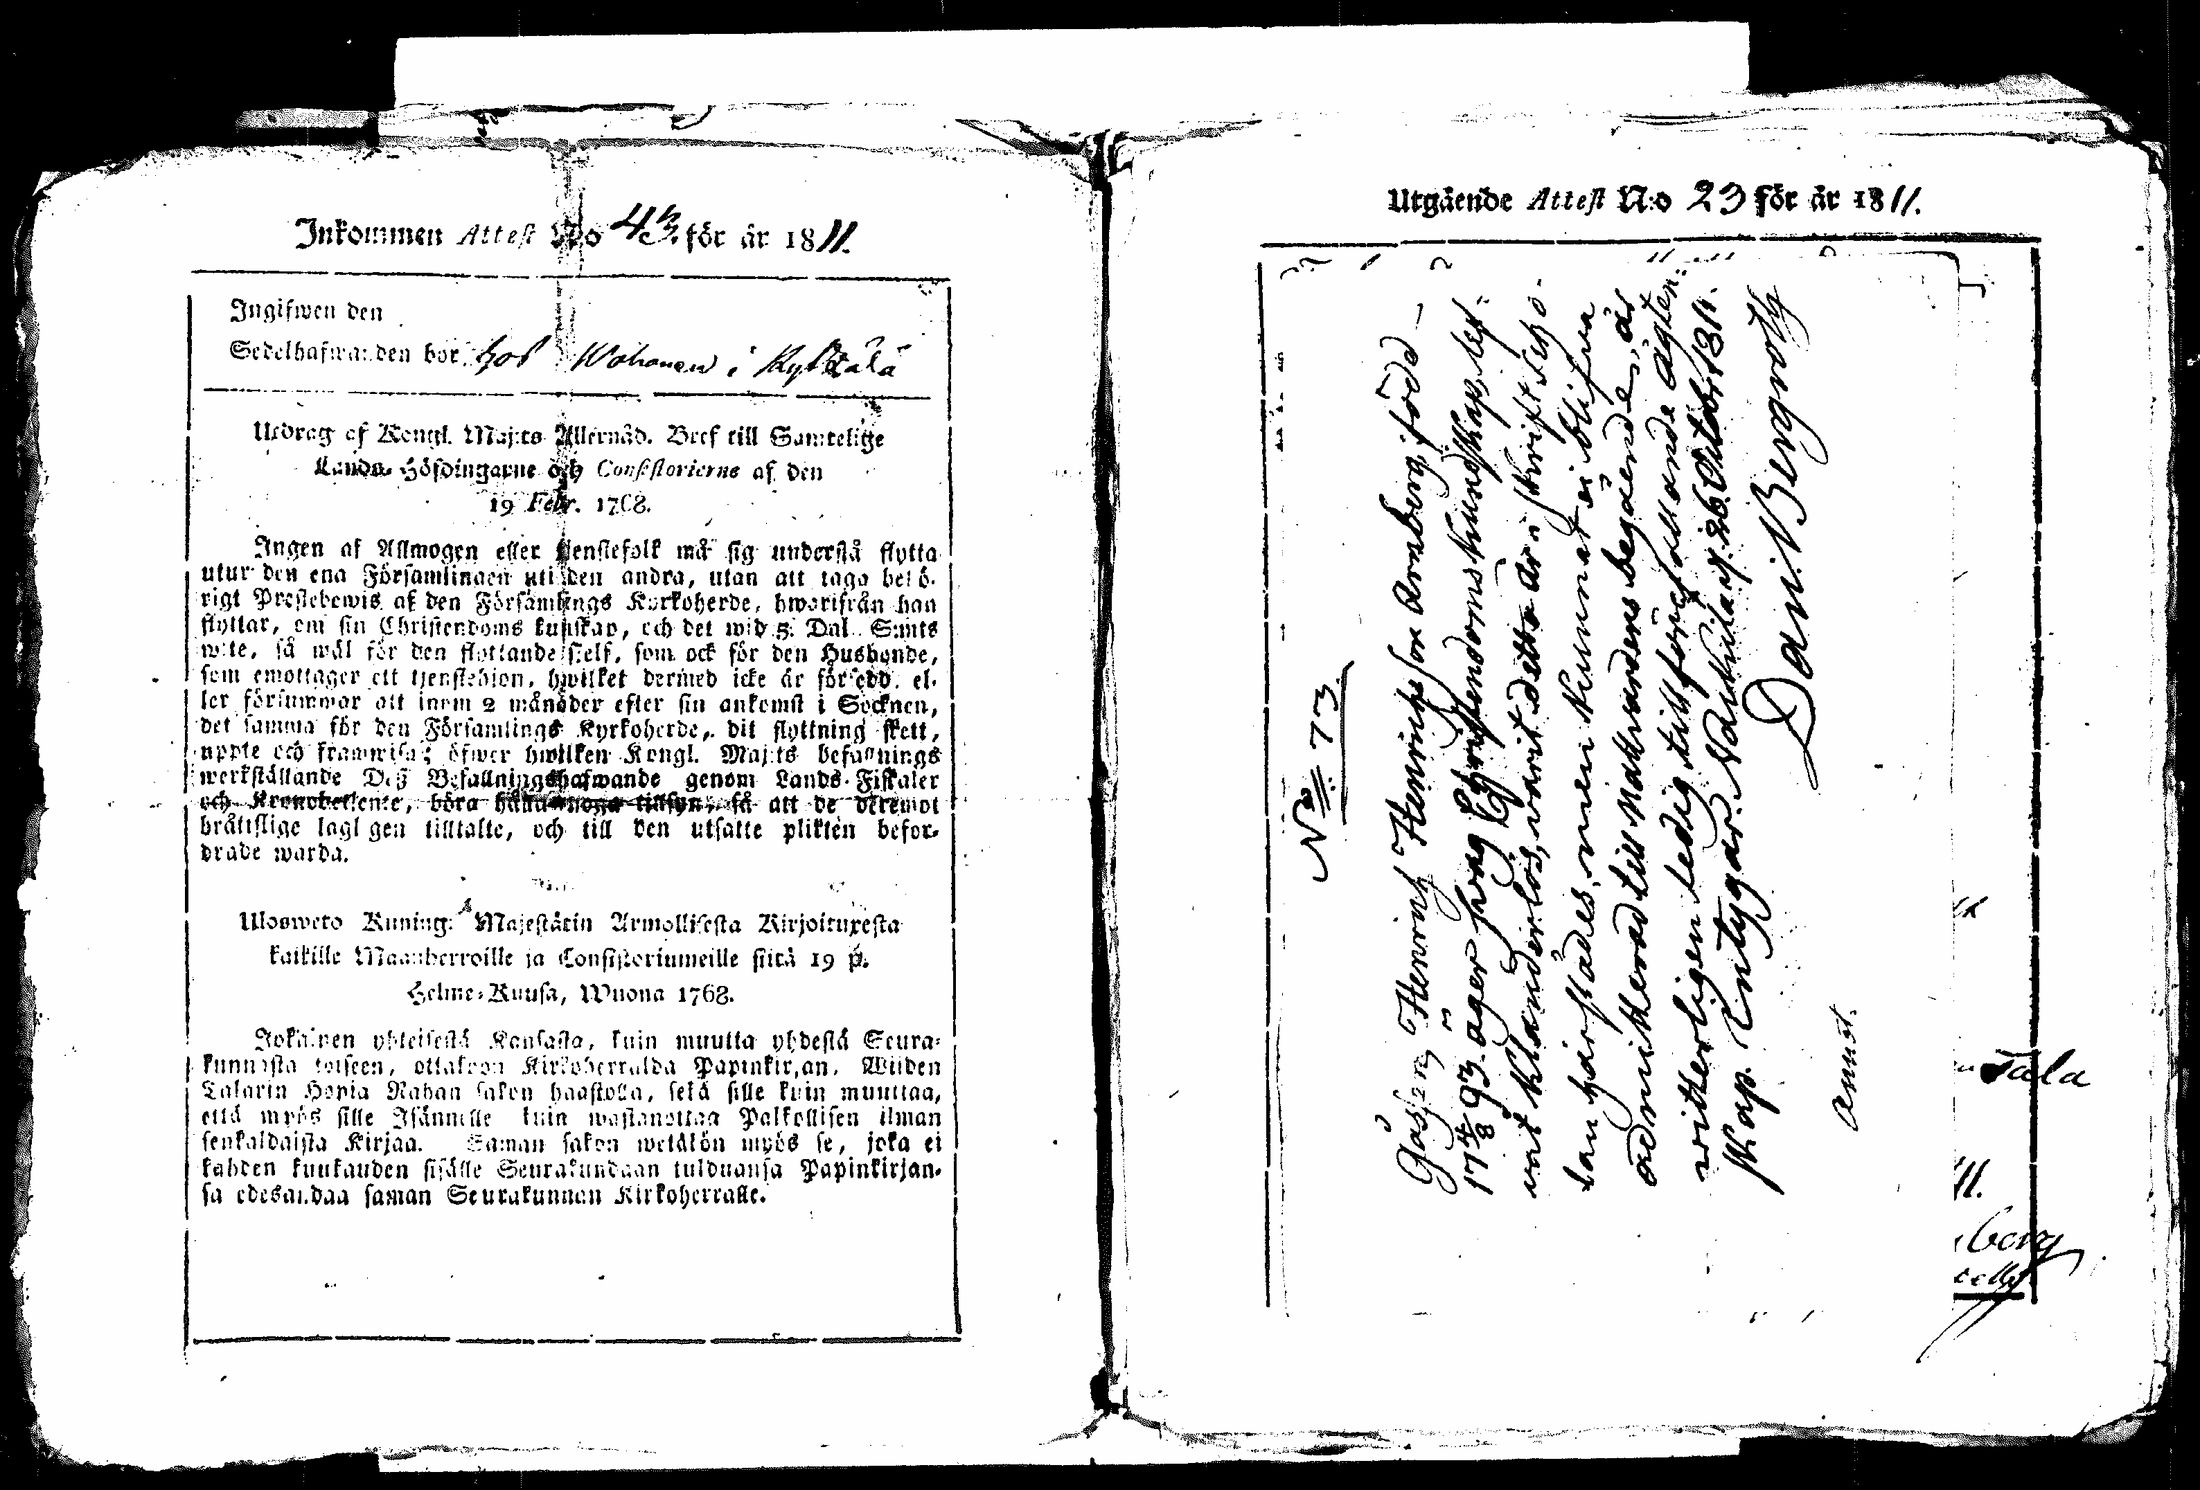 Inkommen Attest No 43. för år 1811.
Ingifwen den
Sedelhafwanden bor hos Wohonen i
Utdrag af Kongl. Maj:ts Allernåd. Bref till Samtelige
Lands-Höfdingarne och Consistorierne af den
19 Febr. 1768.
Ingen af Allmogen eller tjenstefolk må sig understå flytta
utur den ena Församlingen uti den andra, utan att taga behö-
rigt Prestebewis af den Församlings Kyrkoherde, hworifrån han
flyttar, om sin Christendoms kunskap, och det wid 5. Dal. S:mts
wite, så wäl för den flyttande sielf, som ock för den Husbonde,
som emottager ett tjenstehjon, hwilket dermed icke är försedd, el-
ler försummar att inom 2 månader efter sin ankomst i Socknen,
det samma för den Församlings Kyrkoherde, dit flyttning skett,
uppte och framwisa; öfwer hwilken Kongl. Maj:ts befallnings
werkställande Deß Befallningshafwande genom Lands-Fiskaler
och Kronobetjente, böra hålla noga tillsyn, så att de deremot
bråttslige lagligen tilltalte, och till den utsatte plikten befor-
drade warda.
Ulosweto Kuning: Majestätin Armollisesta Kirjoituxesta
kaikille Maanherroille ja Consistoriumeille siitä 19 p.
Helme-Kuusa, Wuona 1768.
Jokainen yhteisestä Kansasta, kuin muutta yhdestä Seura-
kunnasta toiseen, ottakoon Kirkoherralda Papinkirjan, Wiiden
Talarin Hopia Rahan sakon haastolla, sekä sille kuin muuttaa,
että myös sille Isännelle kuin wastanottaa Palkollisen ilman
senkaldaista Kirjaa. Saman sakon wetäkön myös se, joka ei
kahden kuukauden sisälle Seurakundaan tulduansa Papinkirjan-
sa edesandaa saman Seurakunnan Kirkoherralle.
Utgående Attest N:o 23 för år 1811.
No 73
Gossen Henrich Henrichsson Arnberg, född
17 4/8 93. äger svag Christendoms kunskap, lef-
vat klanderlös, varit detta år i skriftscho-
lan härstädes, men kunnat ei blifva
admitterad till Nattvardens begående; är
vitterligen ledig till förefallande ägten-
skap. Intygar. d. 26 October 1811.
Dan. Bergroth
Annot.
sala
11.
berg